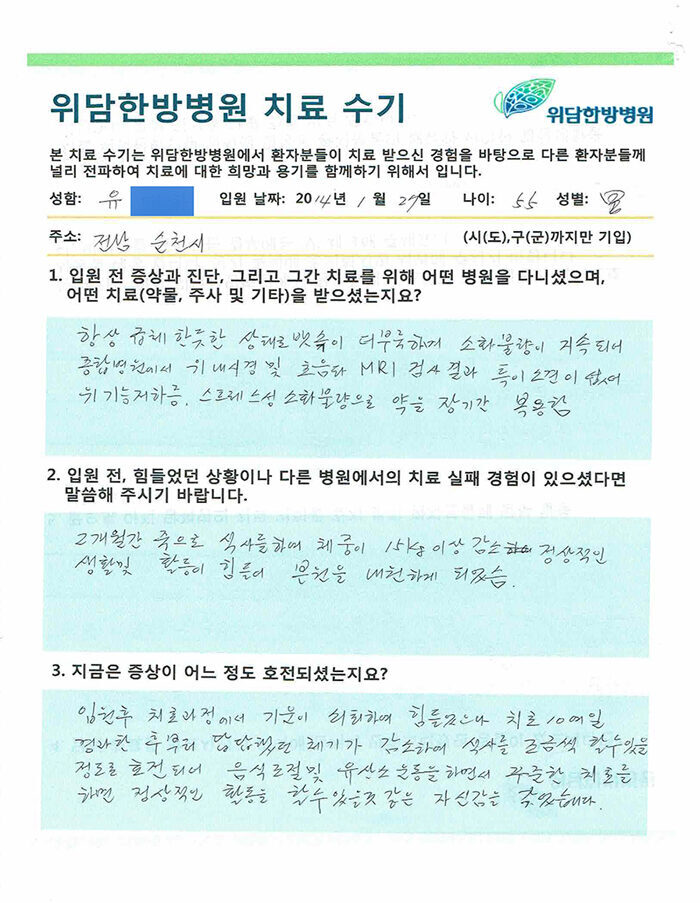 위담한방병원 치료 수기
위담한방병원
본 치료 수기는 위담한방병원에서 환자분들이 치료 받으신 경험을 바탕으로 다른 환자분들께
널리 전파하여 치료에 대한 희망과 용기를 함께하기 위해서 입니다.
성함: 유 입원 날짜: 2014년 1월 29일 나이: 55 성별:
주소: 전남 순천시 (시(도),구(군)까지만 기입)
1. 입원 전 증상과 진단, 그리고 그간 치료를 위해 어떤 병원을 다니셨으며,
어떤 치료(약물, 주사 및 기타)을 받으셨는지요?
항상 급체한듯한 상태로 뱃속이 더부룩하며 소화불량이 지속되어
종합병원에서 위내시경 및 초음파 MRI 검사결과 특이소견이 없어
위기능저하증. 스트레스성 소화불량으로 약을 장기간 복용함
2. 입원 전, 힘들었던 상황이나 다른 병원에서의 치료 실패 경험이 있으셨다면
말씀해 주시기 바랍니다.
2개월간 죽으로 식사를하며 체중이 15kg이상 감소 정상적인
생활및 활동이 힘들어 본원을 내원하게 되었음.
3. 지금은 증상이 어느 정도 호전되셨는지요?
입원후 치료과정에서 기분이 쇠퇴하여 힘들었으나 치료10여일
경과한 후부터 답답했던 체기가 감소하여 식사를 조금씩 할수있을
정도로 호전되어 음식조절및 유산소운동을하면서 꾸준한 치료를
하면 정상적인 활동을 할수있을것 같은 자신감을 갖었습니다.